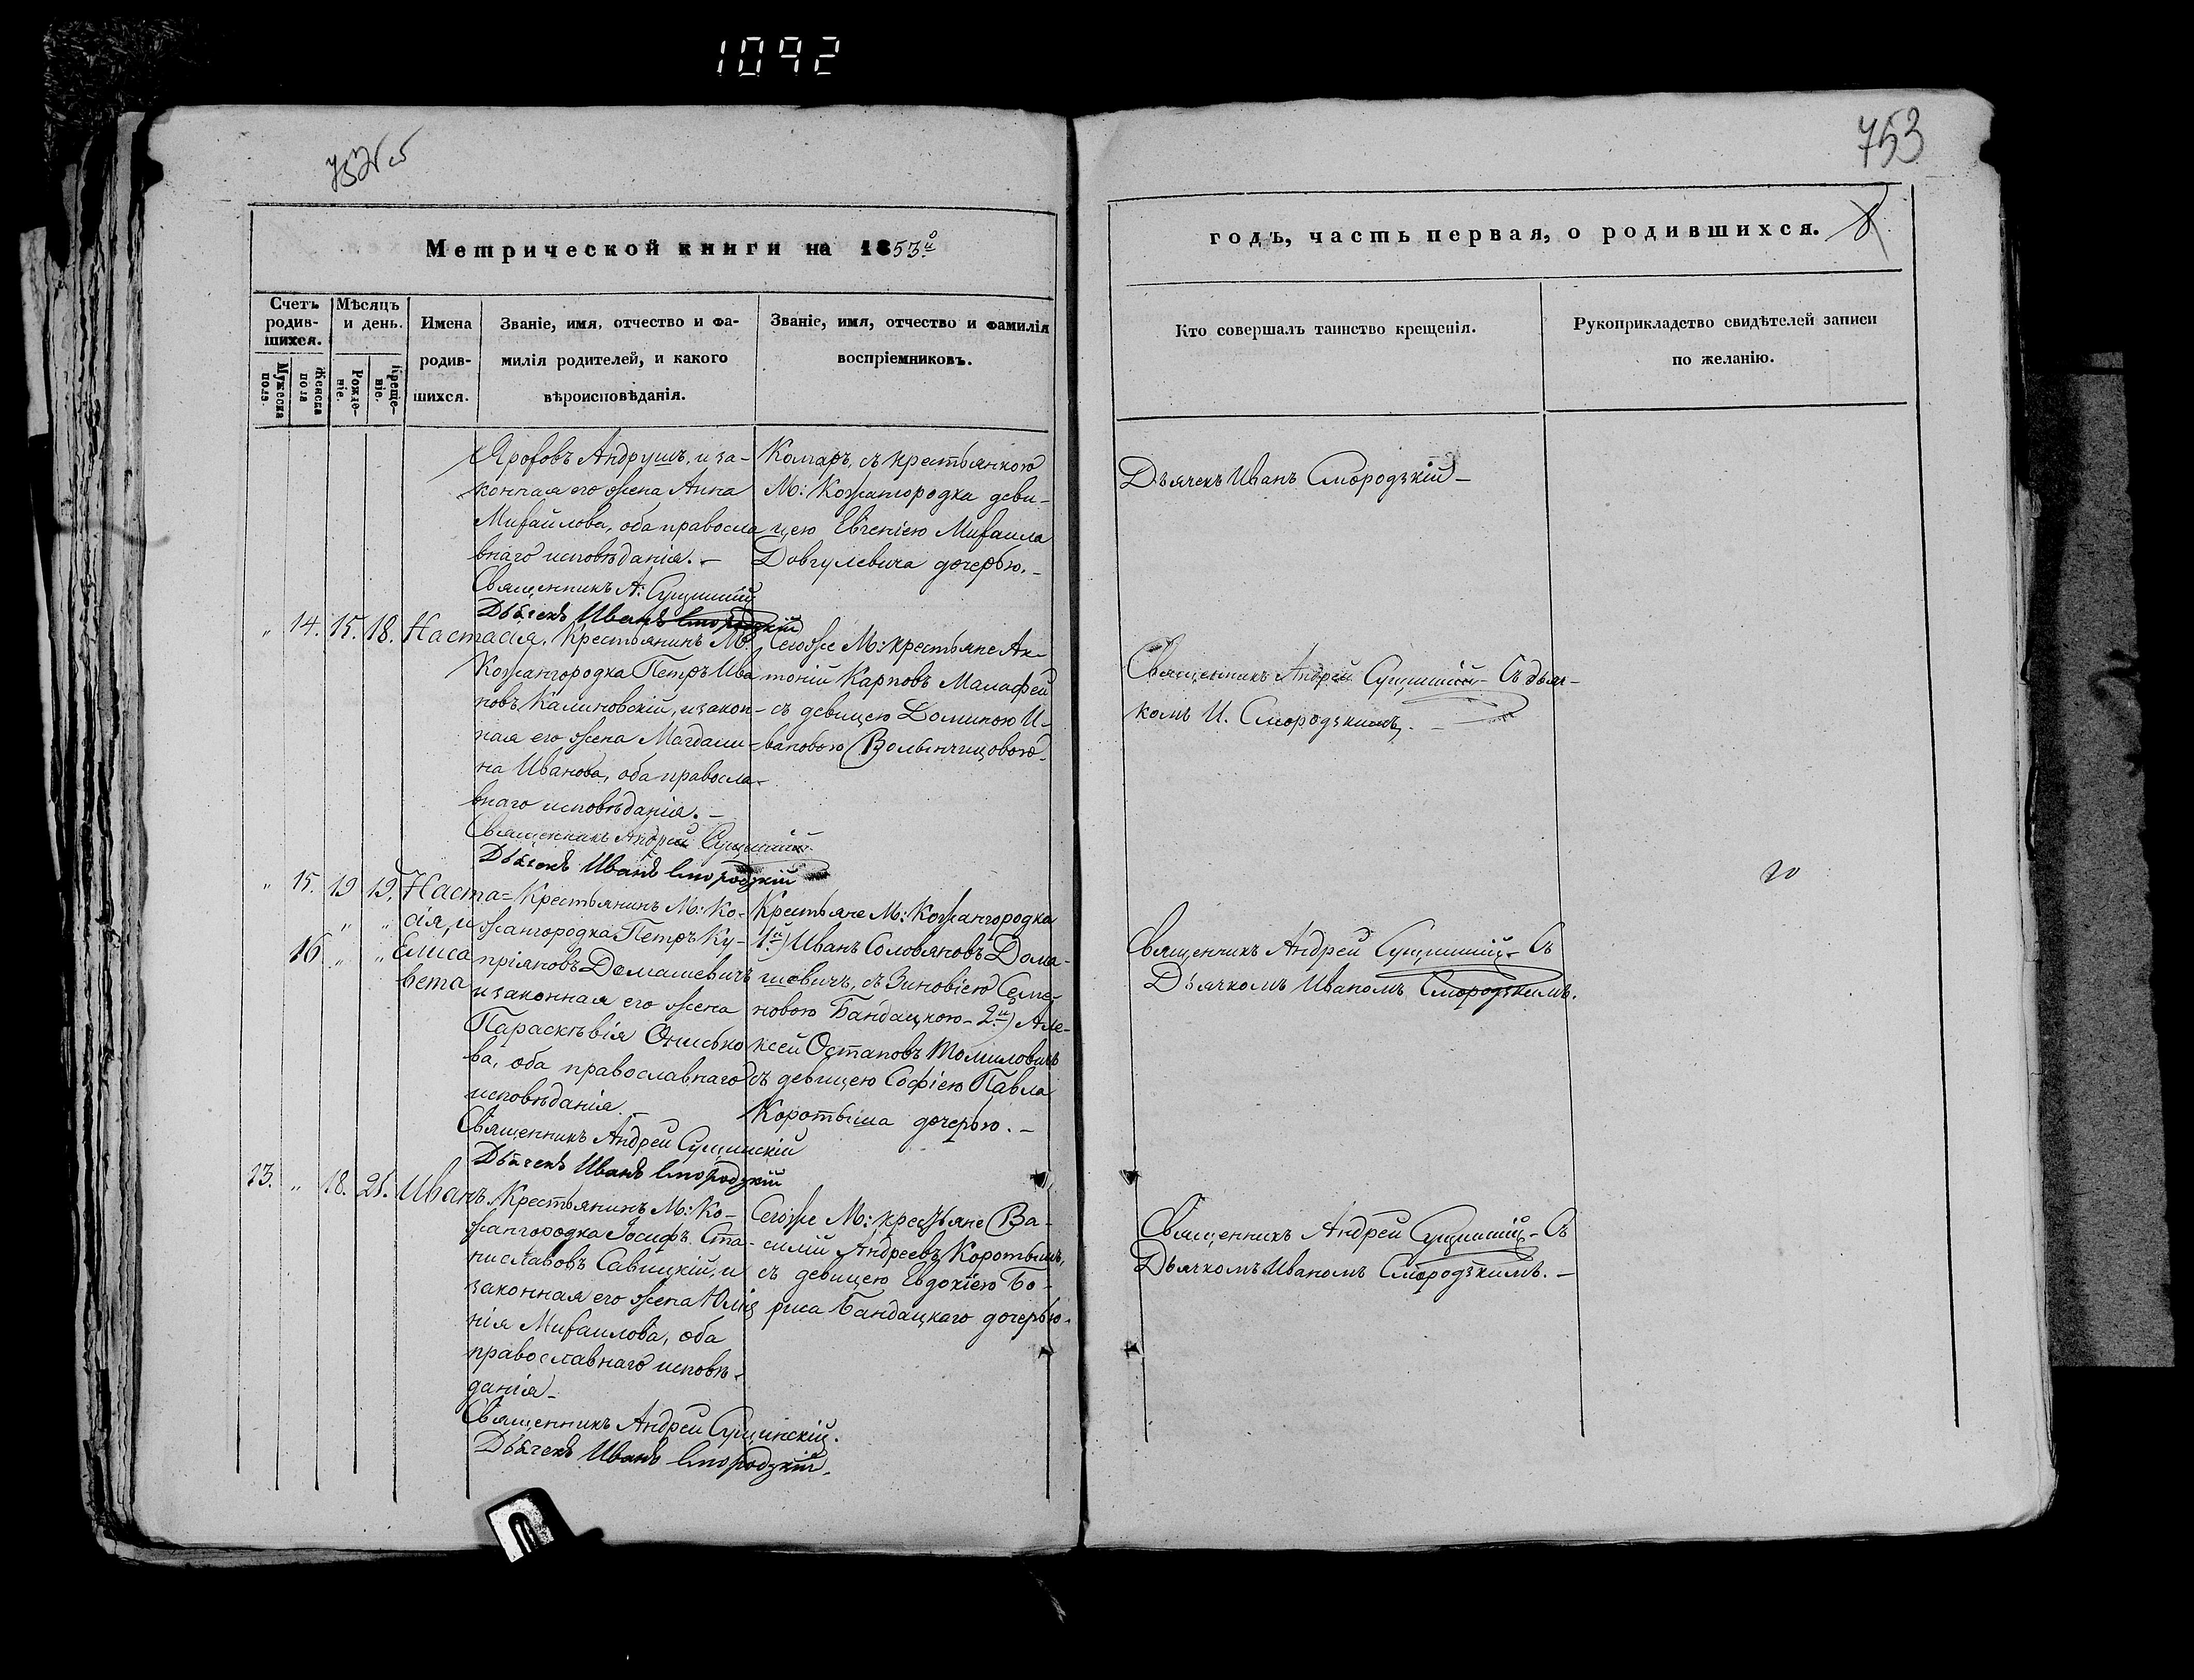 1092
753
Метрической книги на 1853й
годъ, часть первая, о родившихся. 8
Счетъ родившихся.
Мужеска пола.
Женска пола
Мѣсяцъ и день.
Рожденіе.
Крещеніе.
Имена родившихся.
Званіе, имя, отчество и фамилія родителей, и какого вѣроисповѣданія.
Званіе, имя, отчество и фамилія воспріемниковъ.
Кто совершалъ таинство крещенія.
Рукоприкладство свидѣтелей записи по желанію.
Андрушъ, и за-
конная его жена Анна
Михайлова, оба правосла
внаго исповѣданія. –
Священникъ А: Сущинскій
Дьячекъ Иванъ Смородзкій
Колтаръ, съ крестьянкою
М: Кожангородка деви-
цею Евгеніею Михаила
Довгулевича дочерью. –
Дьячекъ Иванъ Смородзкій –
" 14. 15. 18. Настасія.
Крестьянинъ М:
Кожангородка Петръ Ива
новъ Калиновскій, и закон-
ная его жена Магдали-
на Иванова, оба правосла-
внаго исповѣданія. –
Священникъ Андрей Сущинскій
Дьячекъ Иванъ Смородзкій
Сегоже М: крестьяне Ан-
тоній Карповъ Малафей
съ девицею Доминою И-
вановою Волынчицовою.
Священникъ Андрей Сущинскій – Съ дьяч-
комъ И. Смородзкимъ. –
" 15. 19 19. Наста=
" " сія, и
16 " " Елиса
вета
Крестьянинъ М: Ко-
жангородка Петръ Ку-
пріяновъ Домашевичъ
и законная его жена
Параскѣвія Онисько
ва, оба православнаго
исповѣданія. –
Священникъ Андрей Сущинскій
Дьячекъ Иванъ Смородзкій
Крестьяне М: Кожангородка
1й) Иванъ Соловяновъ Дома-
шевичъ, съ Зиновіею Семе-
новою Бандацкою – 2й) Але-
ксей Остаповъ Томиловичъ
съ девицею Софіею Павла
Коротыша дочерью. –
Священникъ Андрей Сущинскій – Съ
Дьячкомъ Иваномъ Смородзкимъ.
13. " 18. 25. Иванъ.
Крестьянинъ М: Ко-
жангородка Іосифъ Ста-
ниславовъ Савицкій, и
законная его жена Юлія
нія Михаилова, оба
православнаго исповѣ-
данія –
Священникъ Андрей Сущинскій.
Дьячекъ Иванъ Смородзкій.
Сегоже М: крестьяне Ва-
силій Андреевъ Коротышъ,
съ девицею Евдокіею Бо-
риса Бандацкаго дочерью.
Священникъ Андрей Сущинскій – Съ
Дьячкомъ Иваномъ Смородзкимъ. –